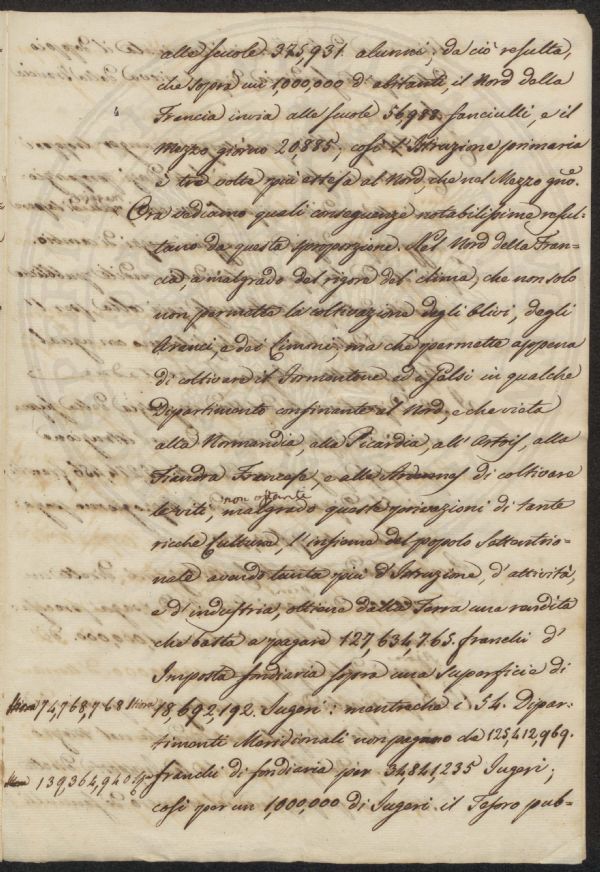 alle scuole 375,931. alunni; da ciò resulta,
che sopra un 1,000,000 d'abitanti, il Nord della
Francia invia alle scuole 56,988. fanciulli, e il
mezzo giorno 20,885, così l'Istruzione primaria
è tre volte più estesa al Nord che nel Mezzo gno.
Ora vediamo quali conseguenze notabilissime resul-
tano da questa sproporzione. Nel Nord della Fran-
cia, a malgrado del rigore del clima, che non solo
non permette la coltivazione degli Ulivi, degli
Aranci, e dei Limoni, ma che permette appena
di coltivare il Formentone ed i Gelsi in qualche
Dipartimento confinante al Nord, e che vieta
alla Normandia, alla Picardia, all'Artois, alla
Fiandra Francese, e alle Ardennes di coltivare
non ostante
le viti, malgrado queste privazioni di tante
ricche Culture, l'insieme del popolo Settentrio-
nale avendo tanta più d'Istruzione, d'attività,
e d'industria, ottiene dalla Terra una rendita
che basta a pagare 127,634,765. franchi d'
Imposta fondiaria sopra una Superficie di
74,768,768
18,692,192. Jugeri: mentreche i 54. Dipar-
timenti Meridionali non pagano da 125,412,969.
139,364,940
franchi di fondiaria per 34,841,235 Jugeri;
così per un 1,000,000 di Jugeri il Tesoro pub-